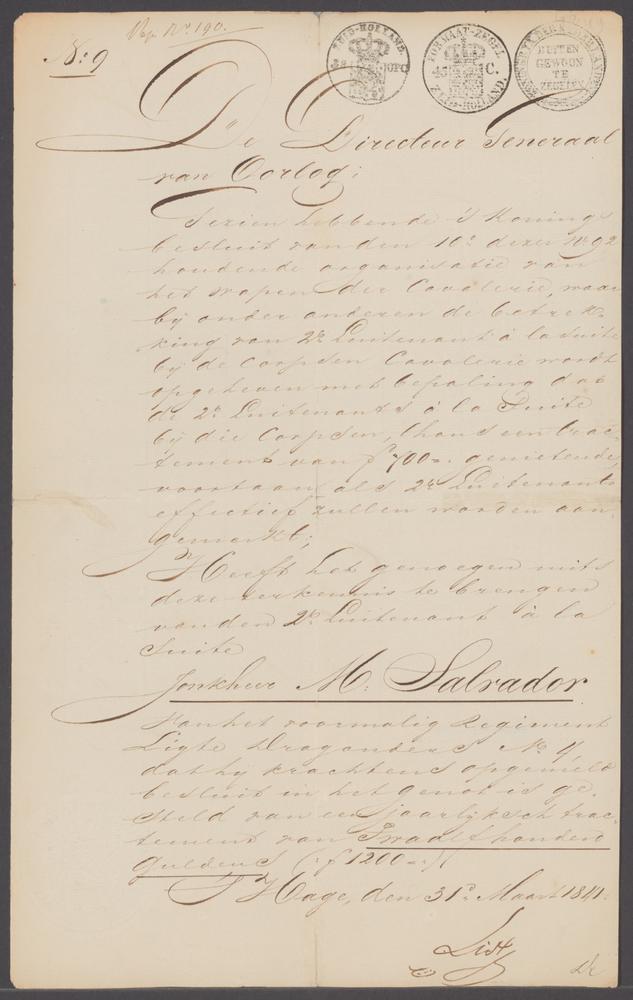 No: 9
Rep. No. 190.
ZUID-HOLLAND.
38 OPC
FORMAAT-ZEGEL
45 C.
ZUID-HOLLAND.
BUITEN
GEWOON
TE
ZEGELEN
De Directeur Generaal
van Oorlog;
Gezien hebbende 's Konings
besluit van den 10e dezer No 92
houdende organisatie van
het wapen der Cavalerie, waar
bij onder anderen de betrek-
king van 2e Luitenant à la suite
bij de Corpsen Cavalerie wordt
opgeheven met bepaling dat
de 2e Luitenants à la Suite
bij die Corpsen, thans een trac-
tement van ƒ 700=. genietende,
voortaan als 2e Luitenants
effectief zullen worden aan-
gemerkt;
Heeft het genoegen mits
deze ter kennis te brengen
van den 2e Luitenant à la
Suite
Jonkheer M: Salvador
van het voormalig Regiment
Ligte Dragonders No 4
dat hij krachtens opgemeld
besluit in het genot is ge-
steld van een jaarlijksch trac-
tement van Twaalfhonderd
Guldens (:ƒ 1200=:)
's Hage, den 31e Maart 1841.
List